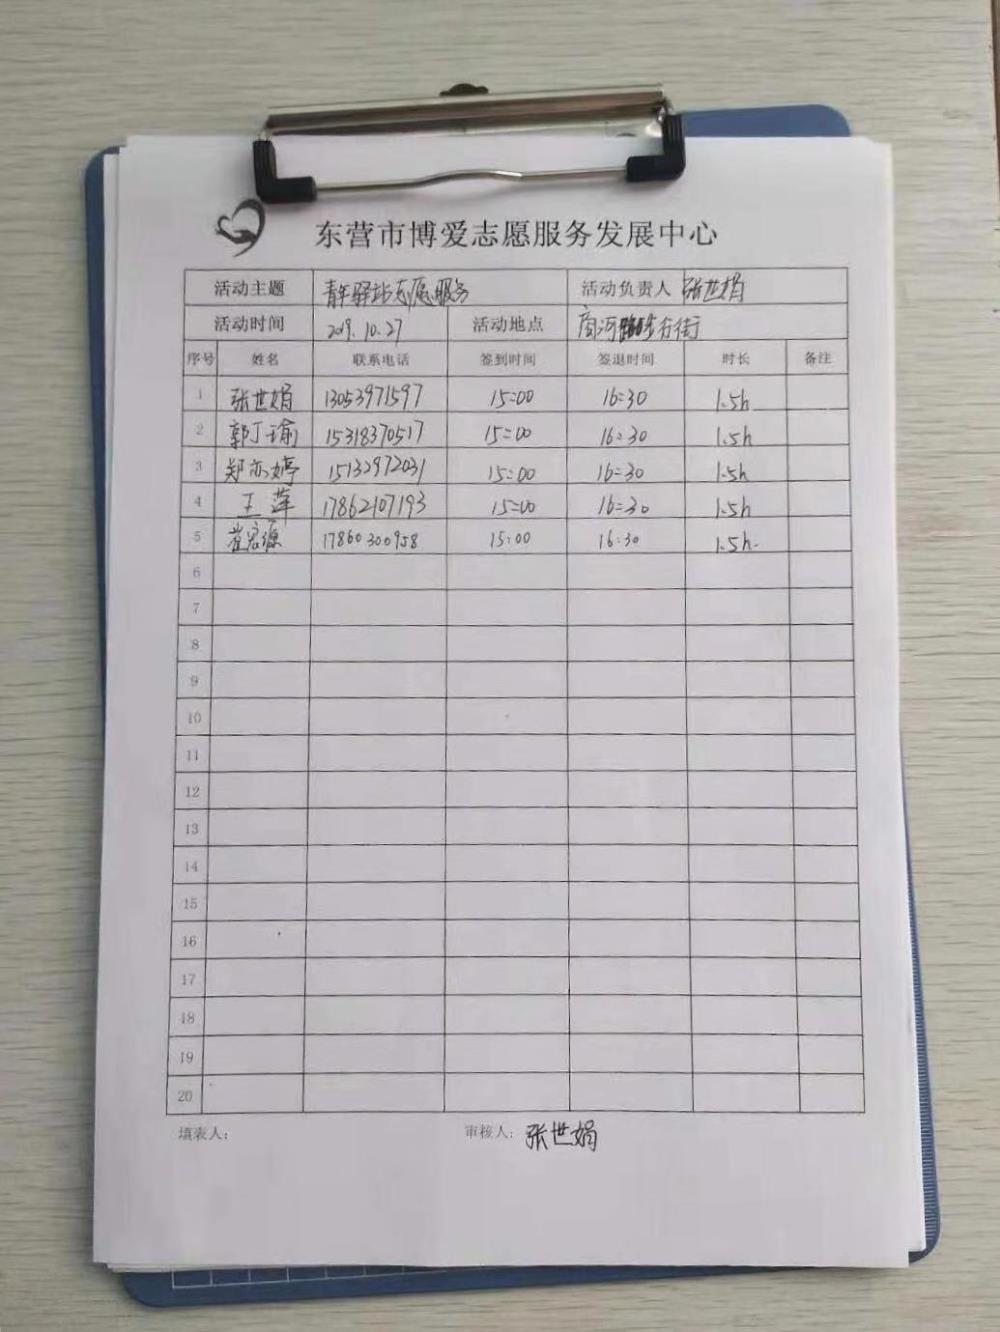 东营市博爱志愿服务发展中心
活动主题 青年驿站志愿服务 活动负责人 张世娟
活动时间 2019.10.27 活动地点 商河路步行街
序号 姓名 联系电话 签到时间 签退时间 时长 备注
1 张世娟 13053971597 15:00 16:30 1.5h
2 郭丁瑜 15318370517 15:00 16:30 1.5h
3 郑亦婷 15132972031 15:00 16:30 1.5h
4 王莲 17862107193 15:00 16:30 1.5h
5 源 17860300958 15:00 16:30 1.5h.
6
7
8
9
10
11
12
13
14
15
16
17
18
19
20
填表人: 审核人: 张世娟